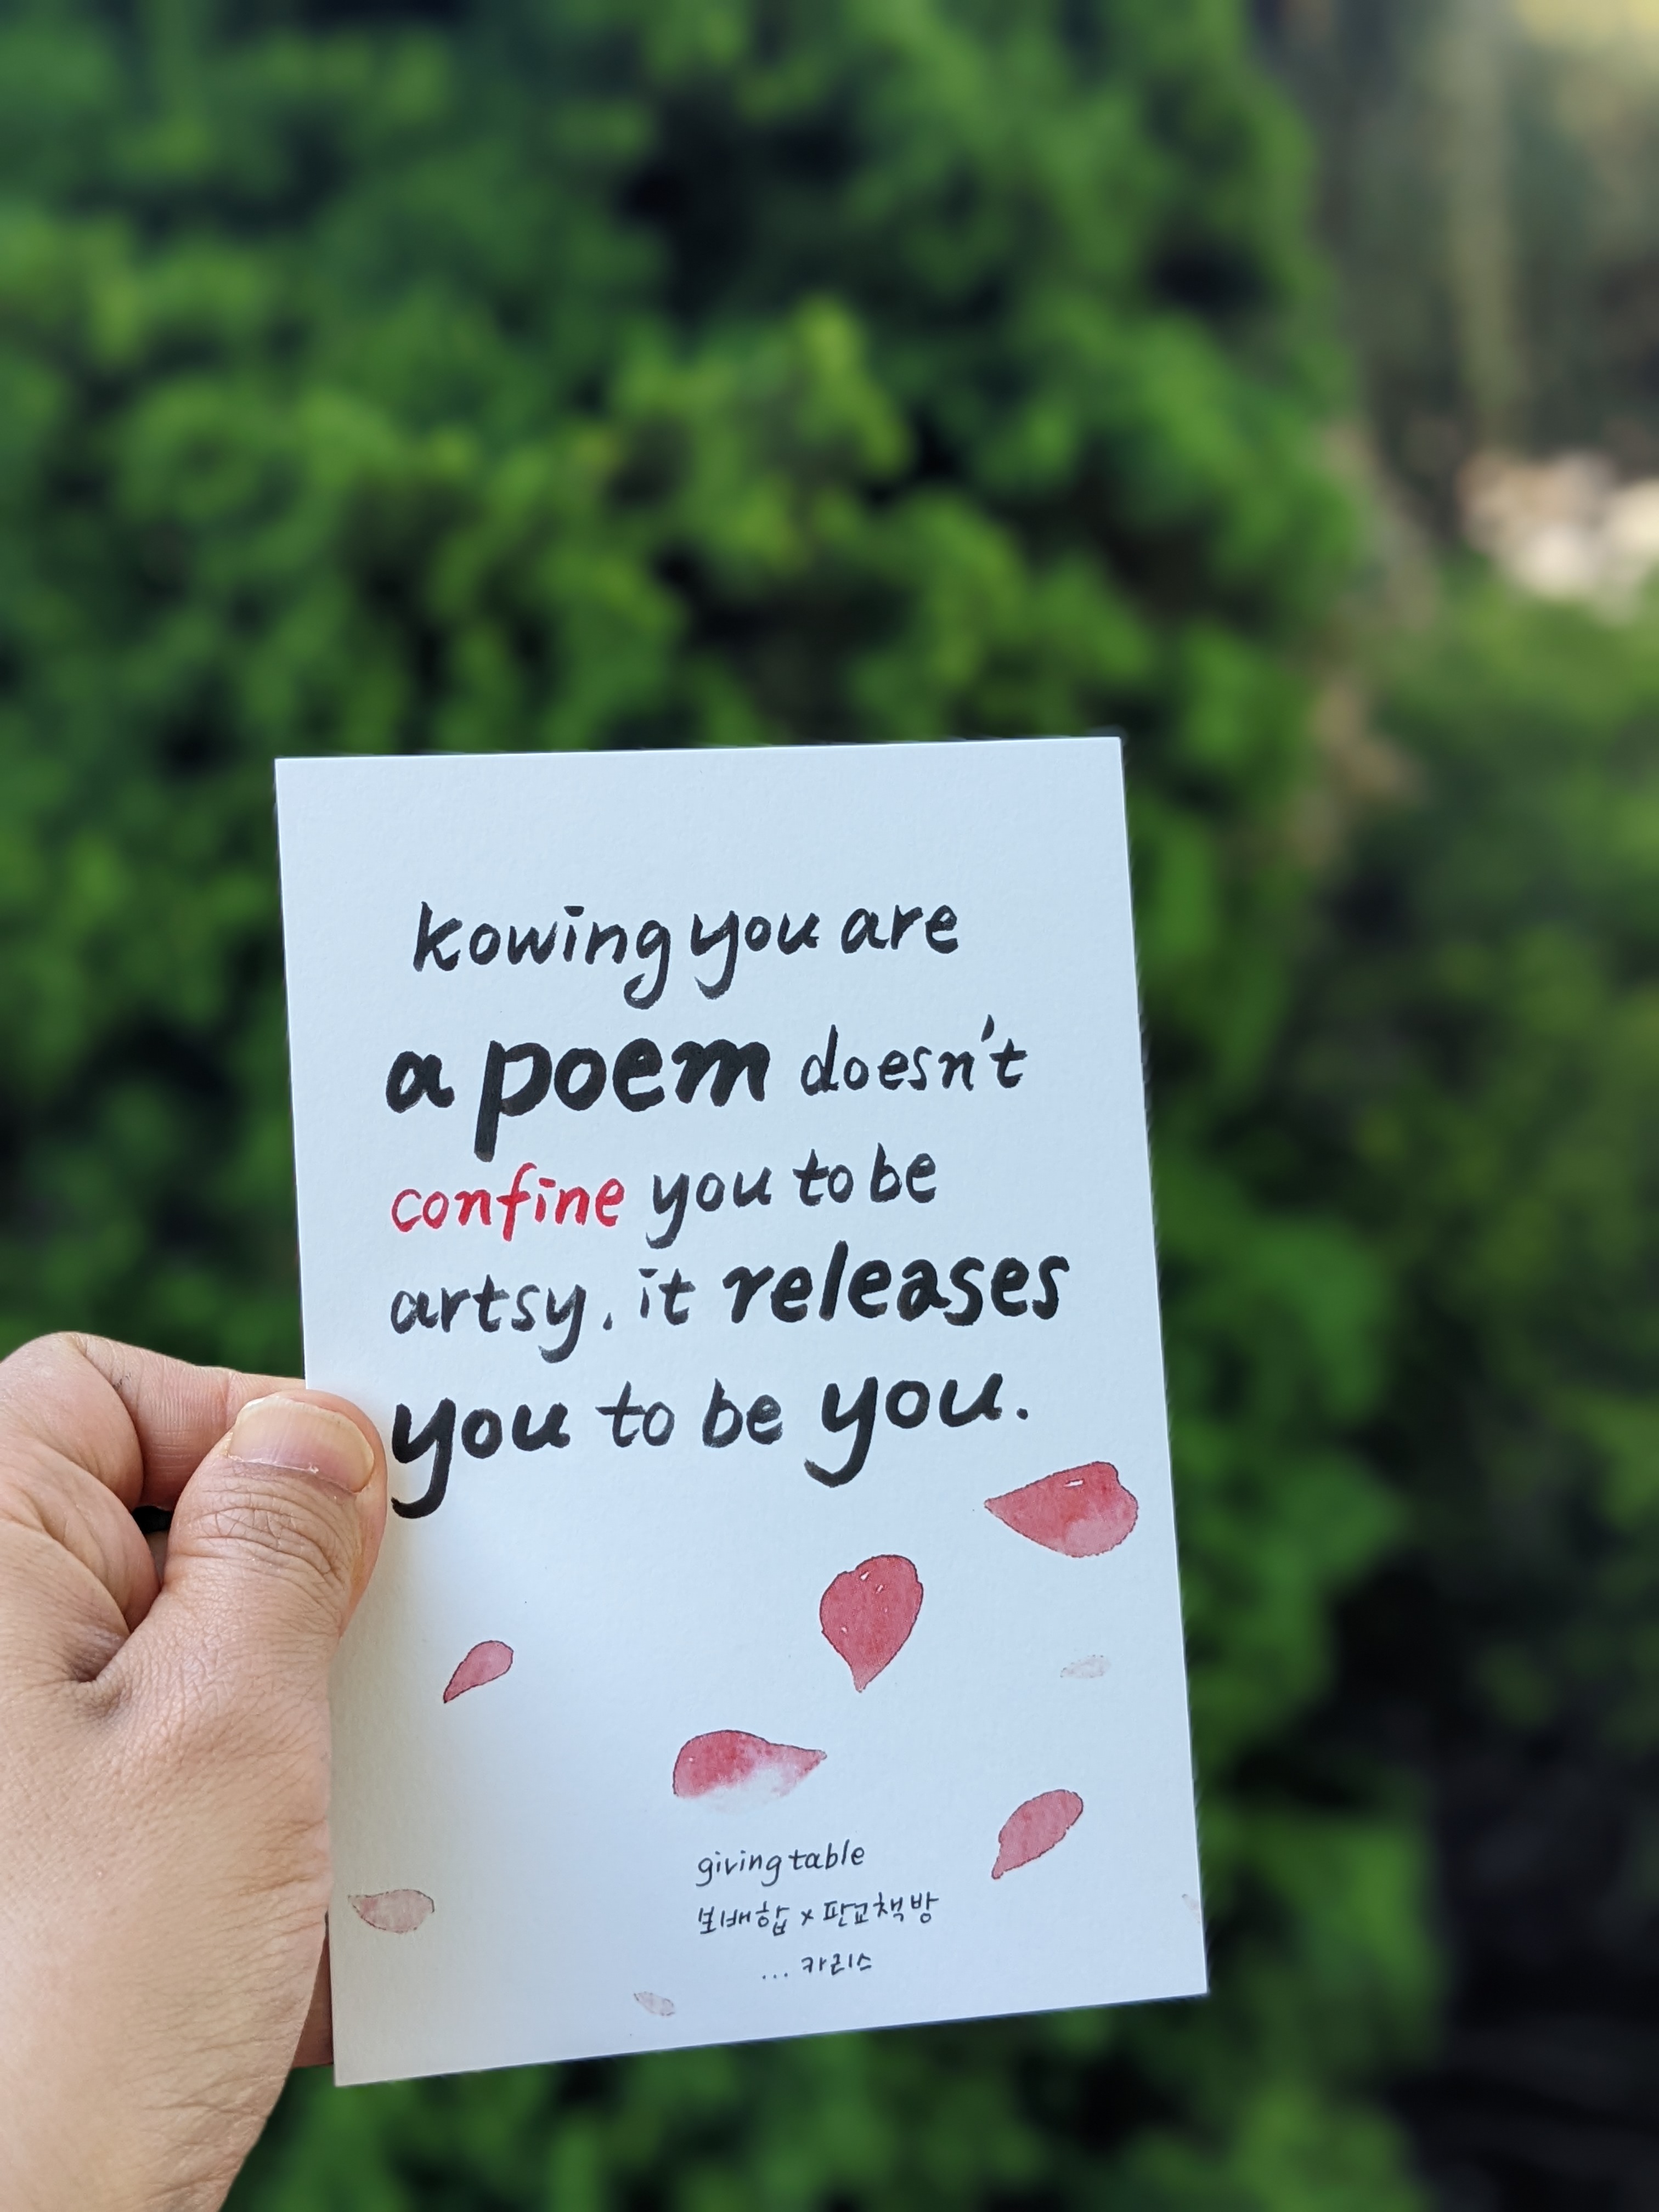 kowing you are
a poem doesn't
confine you to be
artsy. it releases
you to be you.
giving table
보배합 x 판교책방
... 카리스